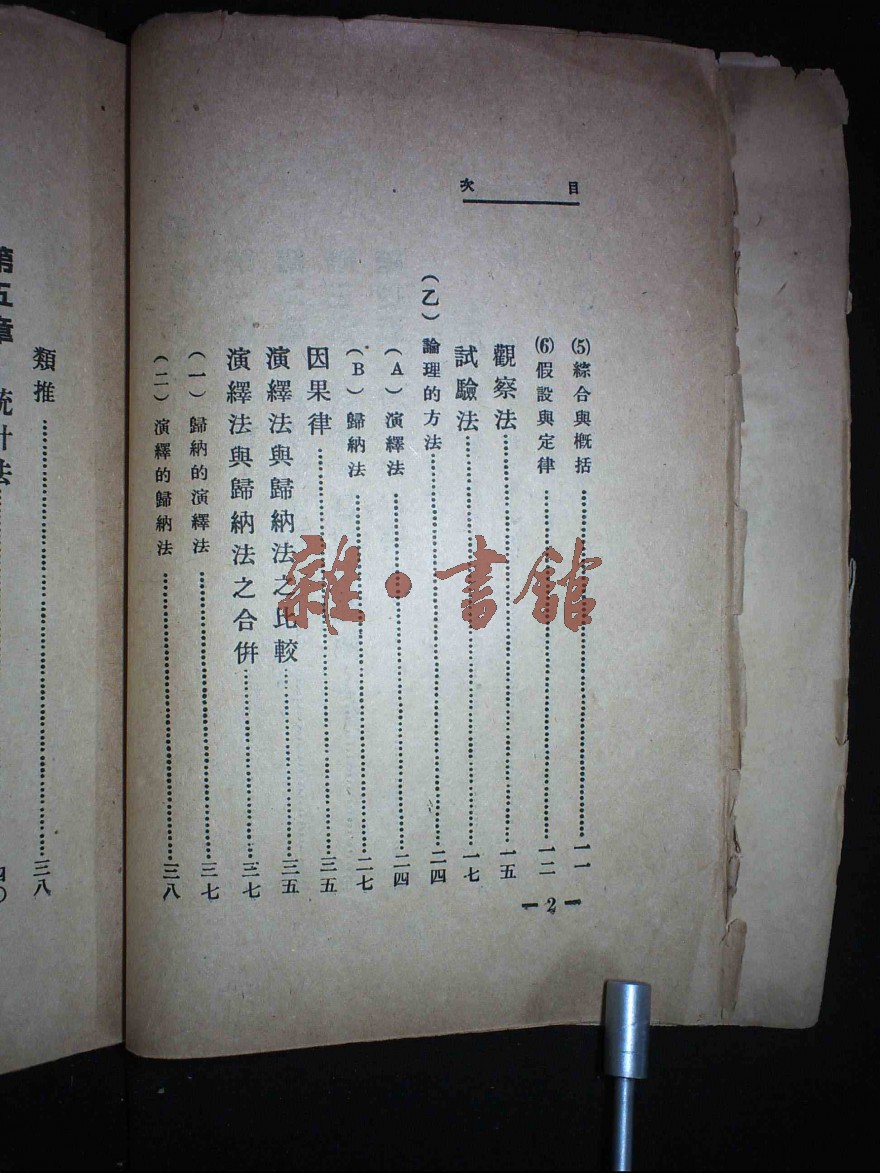 目次
(5)綜合與概括…………一一
(6)假設與定律…………一二
觀察法…………一五
試驗法…………一七
(乙)論理的方法…………二四
(A)演繹法…………二四
(B)歸納法…………二七
因果律…………三五
演繹法與歸納法之比較…………三五
演繹法與歸納法之合併…………三七
(一)歸納的演繹法…………三七
(二)演繹的歸納法…………三八
—2—
類推…………三八
第五章 統計法…………四〇
雜·書館